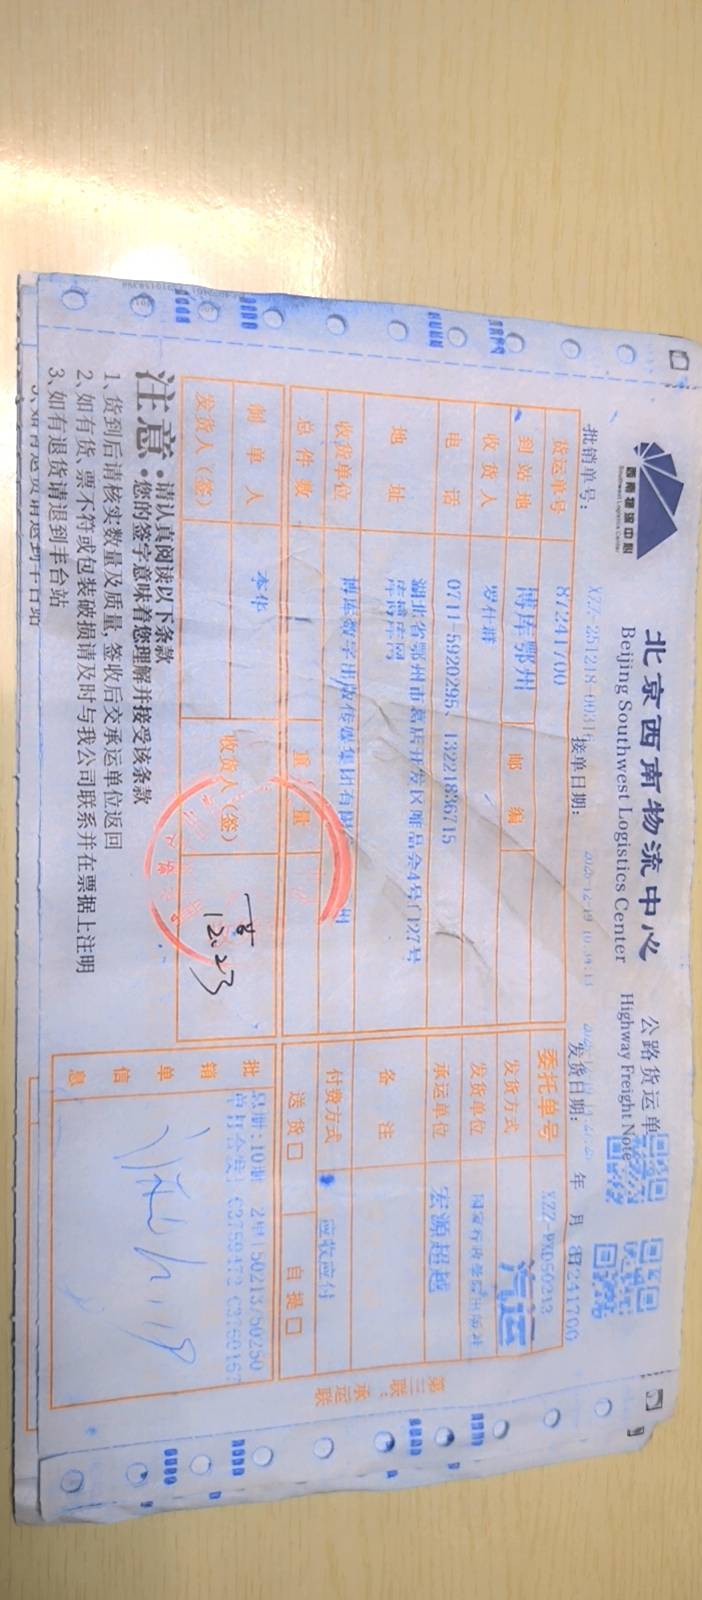 西南物流中心
Southwest Logistics Center
北京西南物流中心 公路货运单
Beijing Southwest Logistics Center Highway Freight Note
批销单号: XZZZ-251218-00316 接单日期: 发货日期: 年 月 日
87241700
货运单号 87241700 委托单号 XZZZ-WKD50213
到站地 博库鄂州 邮编 发货方式 汽运
收货人 发货单位 国家行政学院出版社
电话 0711-5920295、13221836715 承运单位 宏源超越
地址 湖北省鄂州市葛店开发区唯品会4号门27号
库博库网
备注
收货单位 博库数字出版传媒集团有限 州 付费方式 应收应付
总件数 1 重量 送货□ 自提□
制单人 本华 收货人(签)
发货人(签)
12.23
批销单信息 总册:10册 2单:50213/50250
第三联:承运联
注意·请认真阅读以下条款
·您的签字意味着您理解并接受该条款
1、货到后请核实数量及质量,签收后交承运单位返回
2、如有货、票不符或包装破损请及时与我公司联系并在票据上注明
3、如有退货请退到丰台站